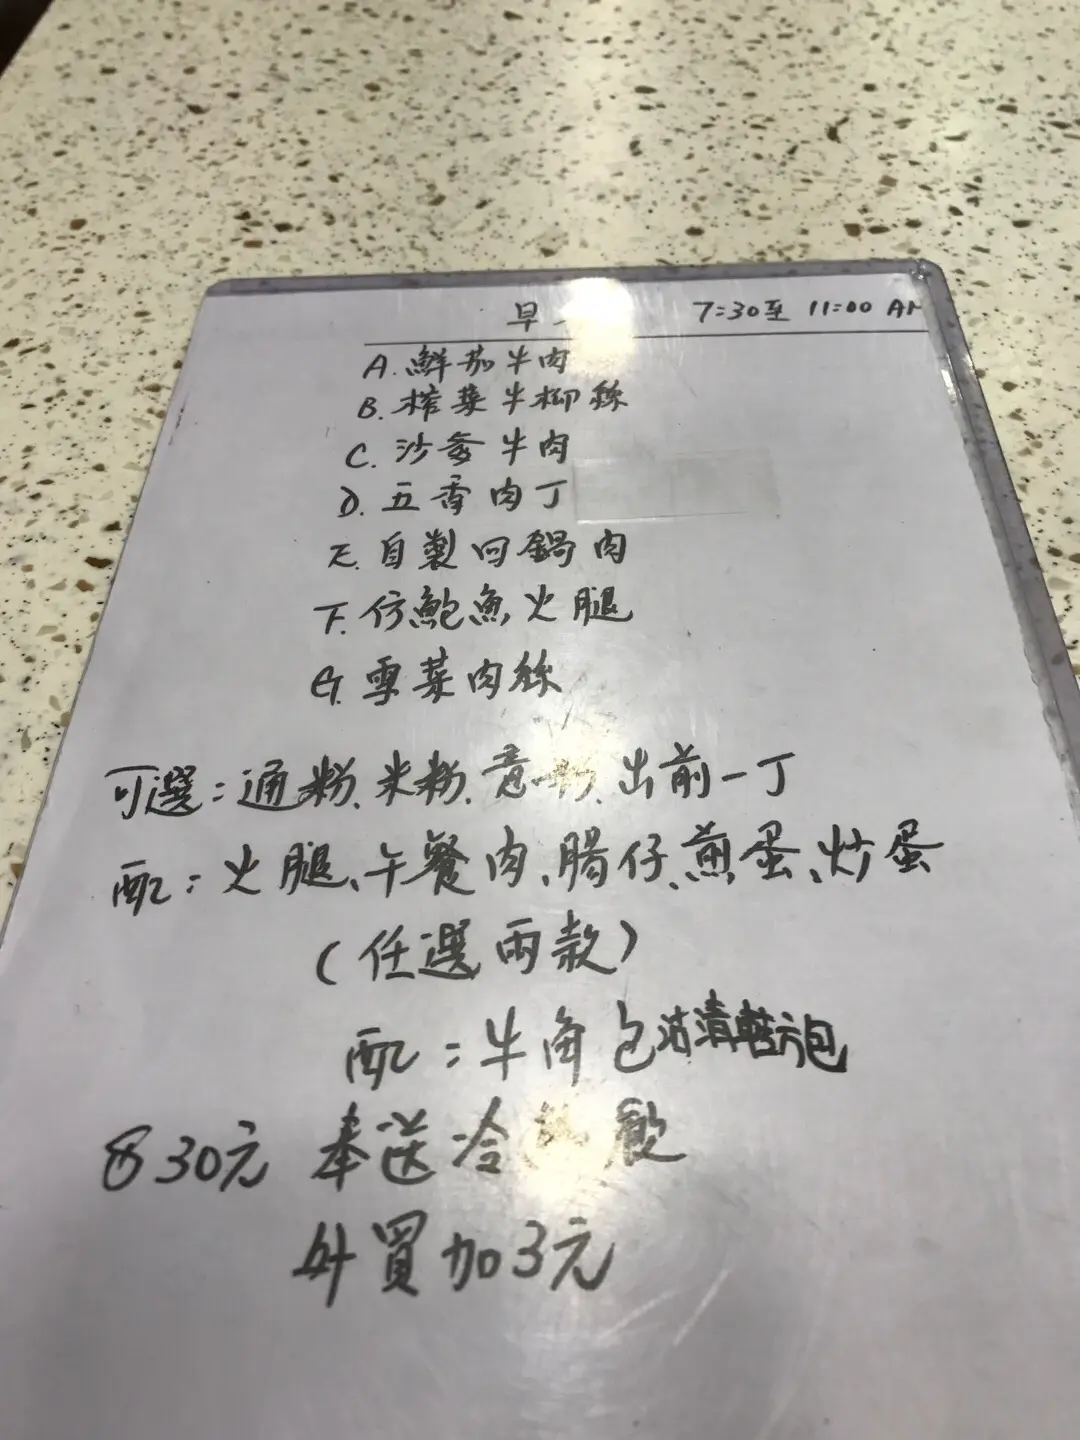 早 7:30至 11:00 AM
A. 鮮茄牛肉
B. 榨菜牛柳絲
C. 沙爹牛肉
D. 五香肉丁
E. 自製回鍋肉
F. 仿鮑魚火腿
G. 雪菜肉絲
可選:通粉、米粉、意粉、出前一丁
配:火腿、午餐肉、腸仔、煎蛋、炒蛋
(任選兩款)
配:牛角包 方包
30元 奉送冷 飲
外買加3元